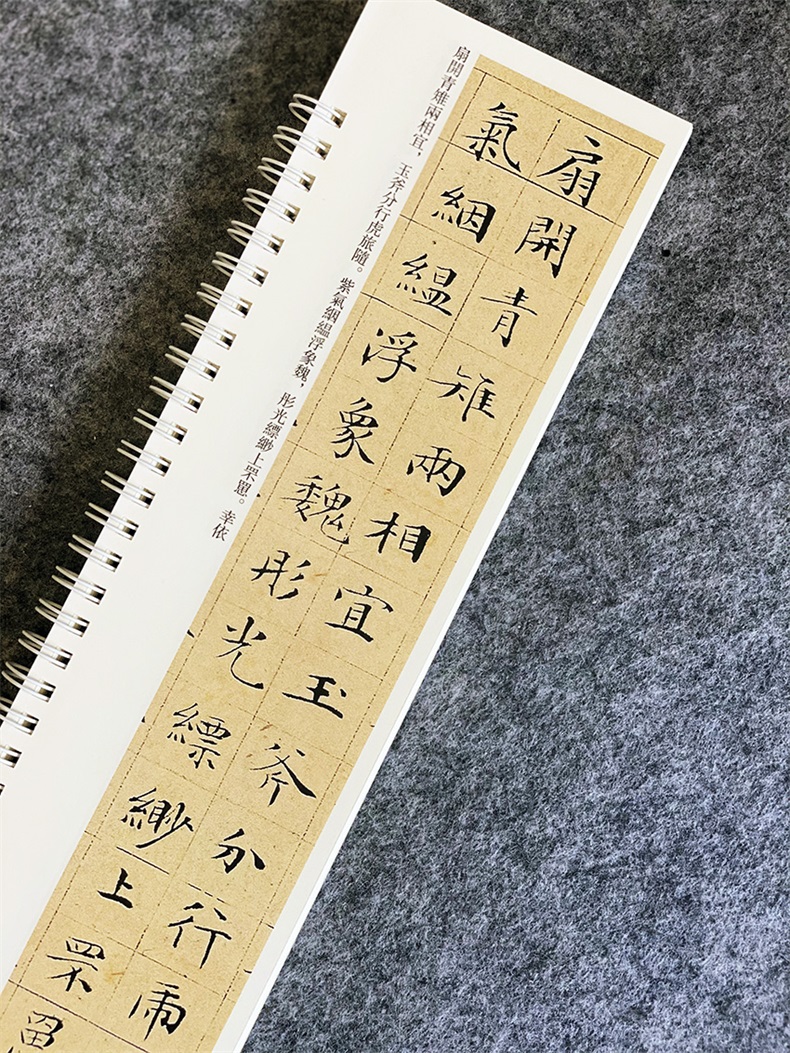 扇開青雉兩相宜玉斧分行虎
氣絪縕浮象魏彤光縹緲上罘罳
扇開青雉兩相宜，玉斧分行虎旅隨。紫氣絪縕浮象魏，彤光縹緲上罘罳。幸依